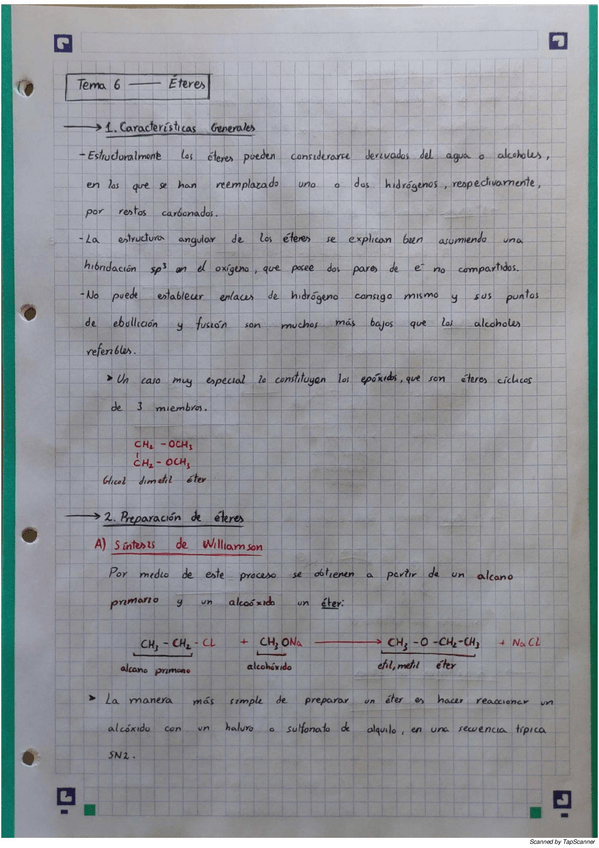 Tema 6 —— Éteres
→ 1. Características Generales
- Estructuralmente los éteres pueden considerarse derivados del agua o alcoholes,
en los que se han reemplazado uno o dos hidrógenos, respectivamente,
por restos carbonados.
- La estructura angular de los éteres se explican bien asumiendo una
hibridación sp³ en el oxígeno, que posee dos pares de e⁻ no compartidos.
- No puede establecer enlaces de hidrógeno consigo mismo y sus puntos
de ebullición y fusión son muchos más bajos que los alcoholes
referibles.
➤ Un caso muy especial lo constituyen los epóxidos, que son éteres cíclicos
de 3 miembros.
CH₂ - OCH₃
CH₂ - OCH₃
Glicol dimetil éter
→ 2. Preparación de éteres
A) Síntesis de Williamson
Por medio de este proceso se obtienen a partir de un alcano
primario y un alcoóxido un éter:
CH₃ - CH₂ - Cl + CH₃ONa → CH₃ - O - CH₂ - CH₃ + NaCl
alcano primario alcohóxido etil, metil éter
➤ La manera más simple de preparar un éter es hacer reaccionar un
alcóxido con un haluro o sulfonato de alquilo, en una secuencia típica
SN2.
Scanned by TapScanner